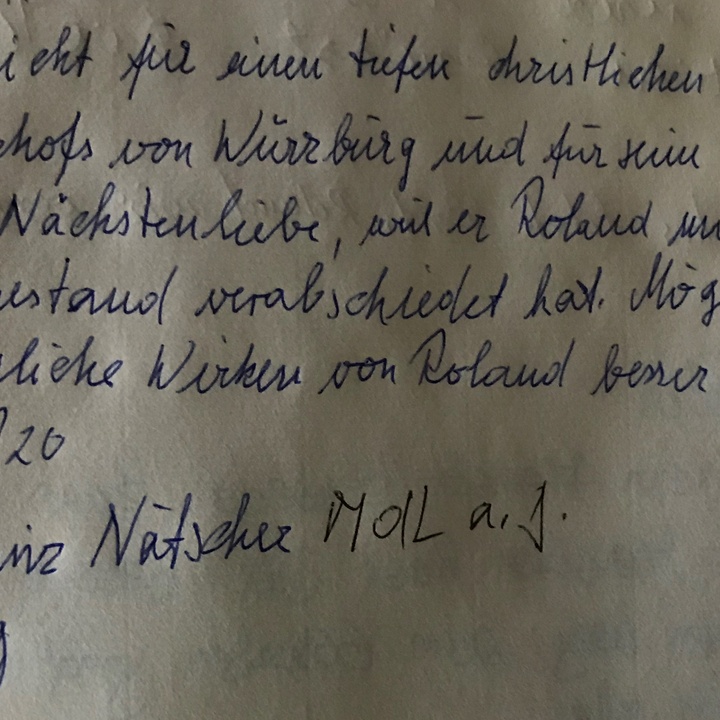 icht für einen tiefen christlichen
chofs von Würzburg und für sein
Nächstenliebe, weil er Roland un
estand verabschiedet hat. Mög
liche Wirken von Roland besser
/20
inz Nätscher MdL a. D.
g